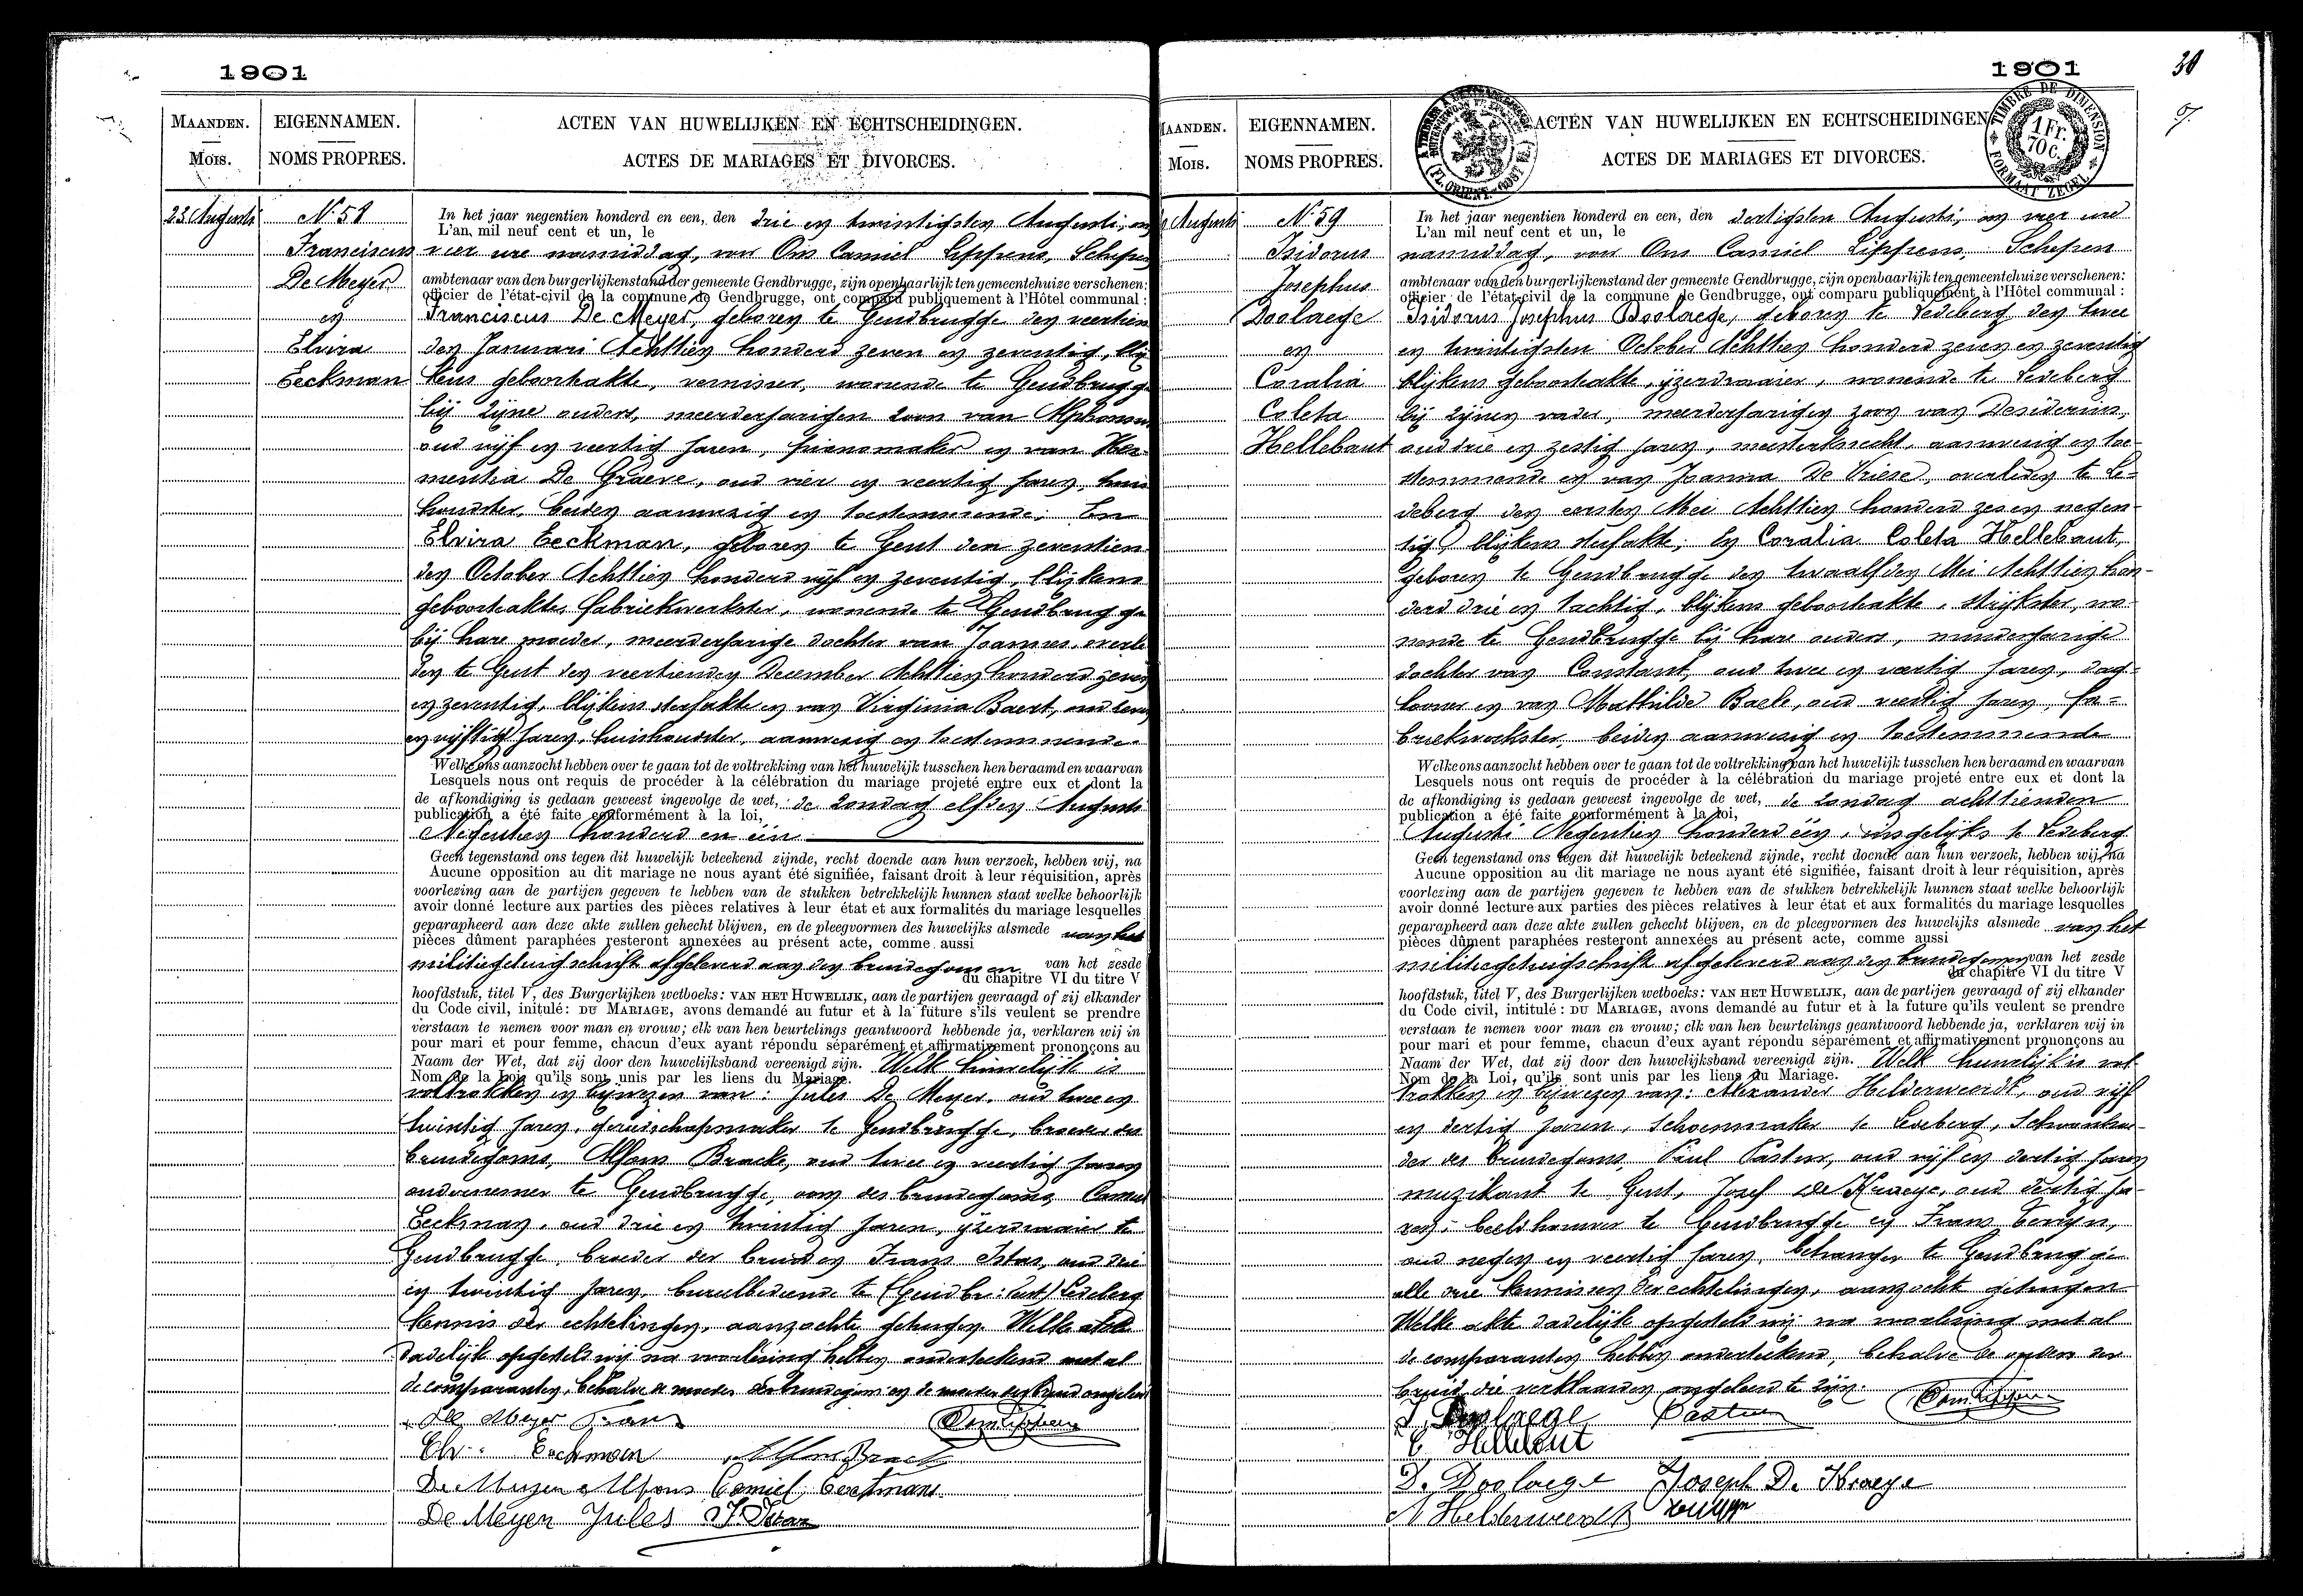 1901
MAANDEN.
Mois.
EIGENNAMEN.
NOMS PROPRES.
ACTEN VAN HUWELIJKEN EN ECHTSCHEIDINGEN.
ACTES DE MARIAGES ET DIVORCES.
23 Augusti
N° 58
Franciscus
De Meyer
en
Elvira
Eeckman
In het jaar negentien honderd en een, den drie en twintigsten Augusti, om
L'an mil neuf cent et un, le
vier ure namiddag, voor Ons Camiel Lippens, Schepen
ambtenaar van den burgerlijkenstand der gemeente Gendbrugge, zijn openbaarlijk ten gemeentehuize verschenen:
officier de l'état-civil de la commune de Gendbrugge, ont comparu publiquement à l'Hôtel communal:
Franciscus De Meyer, geboren te Gendbrugge den veertien
den Januari Achttien honderd zeven en zeventig, blij
kens geboorteakte, vernisser, wonende te Gendbrugge
bij zijne ouders, meerderjarigen zoon van Alphonsus
oud vijf en veertig jaren, pianomaker en van
mentia De Graeve, oud vier en veertig jaren, huis
houdster, beiden aanwezig en toestemmende; En
Elvira Eeckman, geboren te Gent den zeventien
den October Achttien honderd vijf en zeventig, blijkens
geboorteakte, fabriekwerkster, wonende te Gendbrugge
bij hare moeder, meerderjarige dochter van Joannes, overle
den te Gent den veertienden December Achttien honderd zeven
en zeventig, blijkens sterfakte en van Virginia Baert, oud
en vijftig jaren, huishoudster, aanwezig en toestemmende
Welke ons aanzocht hebben over te gaan tot de voltrekking van het huwelijk tusschen hen beraamd en waarvan
Lesquels nous ont requis de procéder à la célébration du mariage projeté entre eux et dont la
de afkondiging is gedaan geweest ingevolge de wet, de zondag elfden Augusti
publication a été faite conformément à la loi,
Negentien honderd en één
Geen tegenstand ons tegen dit huwelijk beteekend zijnde, recht doende aan hun verzoek, hebben wij, na
Aucune opposition au dit mariage ne nous ayant été signifiée, faisant droit à leur réquisition, après
voorlezing aan de partijen gegeven te hebben van de stukken betrekkelijk hunnen staat welke behoorlijk
avoir donné lecture aux parties des pièces relatives à leur état et aux formalités du mariage lesquelles
geparapheerd aan deze akte zullen gehecht blijven, en de pleegvormen des huwelijks alsmede van het
pièces dûment paraphées resteront annexées au présent acte, comme aussi
militiegetuigschrift afgeleverd aan den bruidegom en van het zesde
du chapitre VI du titre V
hoofdstuk, titel V, des Burgerlijken wetboeks: VAN HET HUWELIJK, aan de partijen gevraagd of zij elkander
du Code civil, initulé: DU MARIAGE, avons demandé au futur et à la future s'ils veulent se prendre
verstaan te nemen voor man en vrouw; elk van hen beurtelings geantwoord hebbende ja, verklaren wij in
pour mari et pour femme, chacun d'eux ayant répondu séparément et affirmativement prononçons au
Naam der Wet, dat zij door den huwelijksband vereenigd zijn. Welk huwelijk is
Nom de la Loi, qu'ils sont unis par les liens du Mariage.
voltrokken in bijwezen van: Jules De Meyer, oud twee en
twintig jaren, gereedschapmaker te Gendbrugge, broeder des
bruidegoms, Alfons Bracke, oud twee en veertig jaren
ondernemer te Gendbrugge, oom des bruidegoms, Camiel
Eeckman, oud drie en twintig jaren, ijzerdraaier te
Gendbrugge, broeder der bruid en Frans Istas, oud drie
en twintig jaren, bureelbediende te (Gendbr: ) Ledeberg
kennis der echtelingen, aanzochte getuigen. Welke akte
dadelijk opgesteld wij na voorlezing hebben onderteekend met al
de comparanten, behalve de moeder des bruidegoms en de moeder der bruid ongeleerd
De Meyer Frans
Elv. Eeckman Alfons Bracke
De Meyer Alfons Camiel Eeckman
De Meyer Jules F. Istas
1901
30
MAANDEN.
Mois.
EIGENNAMEN.
NOMS PROPRES.
ACTEN VAN HUWELIJKEN EN ECHTSCHEIDINGEN
ACTES DE MARIAGES ET DIVORCES.
TIMBRE DE DIMENSION
1 Fr.
70 C.
FORMAAT ZEGEL
Augusti
N° 59
Isidorus
Josephus
Doolaege
en
Coralia
Coleta
Hellebaut
In het jaar negentien honderd en een, den dertigsten Augusti, om vier ure
L'an mil neuf cent et un, le
namiddag, voor Ons Camiel Lippens, Schepen
ambtenaar van den burgerlijkenstand der gemeente Gendbrugge, zijn openbaarlijk ten gemeentehuize verschenen:
officier de l'état-civil de la commune de Gendbrugge, ont comparu publiquement à l'Hôtel communal:
Isidorus Josephus Doolaege, geboren te Ledeberg den twee
en twintigsten October Achttien honderd zeven en zeventig
blijkens geboorteakte, ijzerdraaier, wonende te Ledeberg
bij zijnen vader, meerderjarigen zoon van Desiderius,
oud drie en zestig jaren, meesterknecht, aanwezig en toe-
stemmende en van Joanna De Vriese, overleden te Le-
deberg den eersten Mei Achttien honderd zes en negen-
tig, blijkens sterfakte; En Coralia Coleta Hellebaut,
geboren te Gendbrugge den twaalfden Mei Achttien hon-
derd drie en tachtig, blijkens geboorteakte, strijkster, wo-
nende te Gendbrugge bij hare ouders, minderjarige
dochter van Constant, oud twee en veertig jaren, dag-
looner en van Mathilde Baele, oud veertig jaren, fa-
briekwerkster, beiden aanwezig en toestemmende
Welke ons aanzocht hebben over te gaan tot de voltrekking van het huwelijk tusschen hen beraamd en waarvan
Lesquels nous ont requis de procéder à la célébration du mariage projeté entre eux et dont la
de afkondiging is gedaan geweest ingevolge de wet, de zondag achttienden
publication a été faite conformément à la loi,
Augusti Negentien honderd één, insgelijks te Ledeberg
Geen tegenstand ons tegen dit huwelijk beteekend zijnde, recht doende aan hun verzoek, hebben wij, na
Aucune opposition au dit mariage ne nous ayant été signifiée, faisant droit à leur réquisition, après
voorlezing aan de partijen gegeven te hebben van de stukken betrekkelijk hunnen staat welke behoorlijk
avoir donné lecture aux parties des pièces relatives à leur état et aux formalités du mariage lesquelles
geparapheerd aan deze akte zullen gehecht blijven, en de pleegvormen des huwelijks alsmede van het
pièces dûment paraphées resteront annexées au présent acte, comme aussi
militiegetuigschrift afgeleverd aan den bruidegom en van het zesde
du chapitre VI du titre V
hoofdstuk, titel V, des Burgerlijken wetboeks: VAN HET HUWELIJK, aan de partijen gevraagd of zij elkander
du Code civil, intitulé: DU MARIAGE, avons demandé au futur et à la future qu'ils veulent se prendre
verstaan te nemen voor man en vrouw; elk van hen beurtelings geantwoord hebbende ja, verklaren wij in
pour mari et pour femme, chacun d'eux ayant répondu séparément et affirmativement prononçons au
Naam der Wet, dat zij door den huwelijksband vereenigd zijn. Welk huwelijk is vol-
Nom de la Loi, qu'ils sont unis par les liens du Mariage.
trokken in bijwezen van: Alexander Helderweerdt, oud vijf
en dertig jaren, schoenmaker te Ledeberg, schoonbroe-
der des bruidegoms, Paul Pasteur, oud vijf en dertig jaren
muzikant te Gent, Josef De Kraeye, oud dertig ja-
ren, beeldhouwer te Gendbrugge en Frans
oud negen en veertig jaren, behanger te Gendbrugge
alle drie kennissen der echtelingen, aanzochte getuigen
Welke akte dadelijk opgesteld wij na voorlezing met al
de comparanten hebben onderteekend, behalve de ouders der
bruid die verklaarden ongeleerd te zijn.
I. Doolaege Pasteur
C Hellebaut
D. Doolaege Joseph De Kraeye
A Helderweerdt